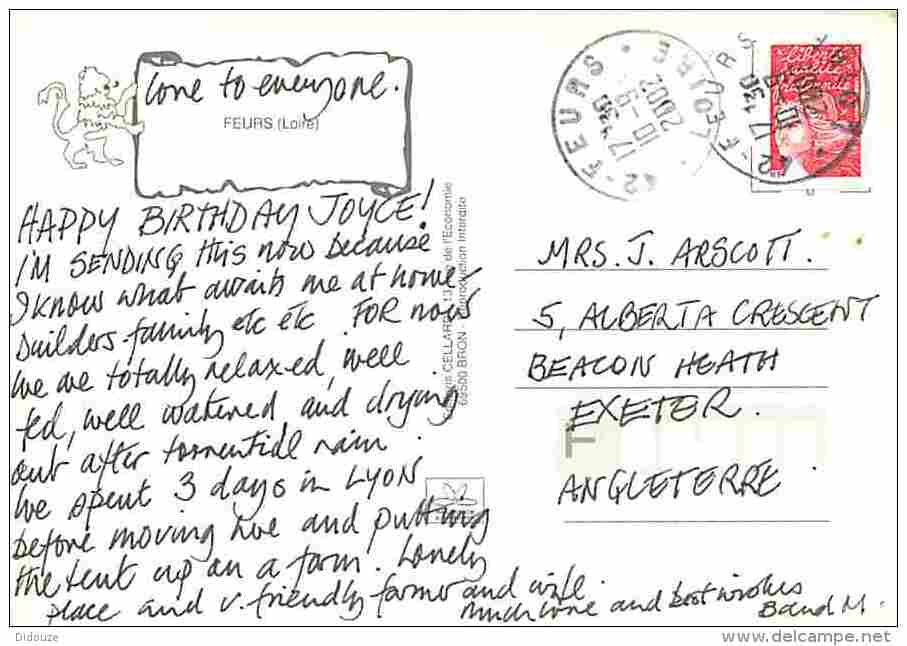 Love to everyone.
FEURS (Loire)
HAPPY BIRTHDAY JOYCE!
I'M SENDING this now because
I know what awaits me at home
builders family etc etc FOR now
we are totally relaxed, well
fed, well watered and drying
out after torrential rain.
We spent 3 days in LYON
before moving here and putting
the tent up on a farm. Lovely
place and v. friendly farmer and wife.
Much love and best wishes
B and M.
CELLARD 13 de l'Economie
69500 BRON - Reproduction Interdite
42-FEURS LOIRE
17 H 30
10-9
2002
42-FEURS LOIRE
17 H 30
10-9
2002
MRS. J. ARSCOTT.
5, ALBERTA CRESCENT
BEACON HEATH
EXETER.
ANGLETERRE.
Didouze
www.delcampe.net